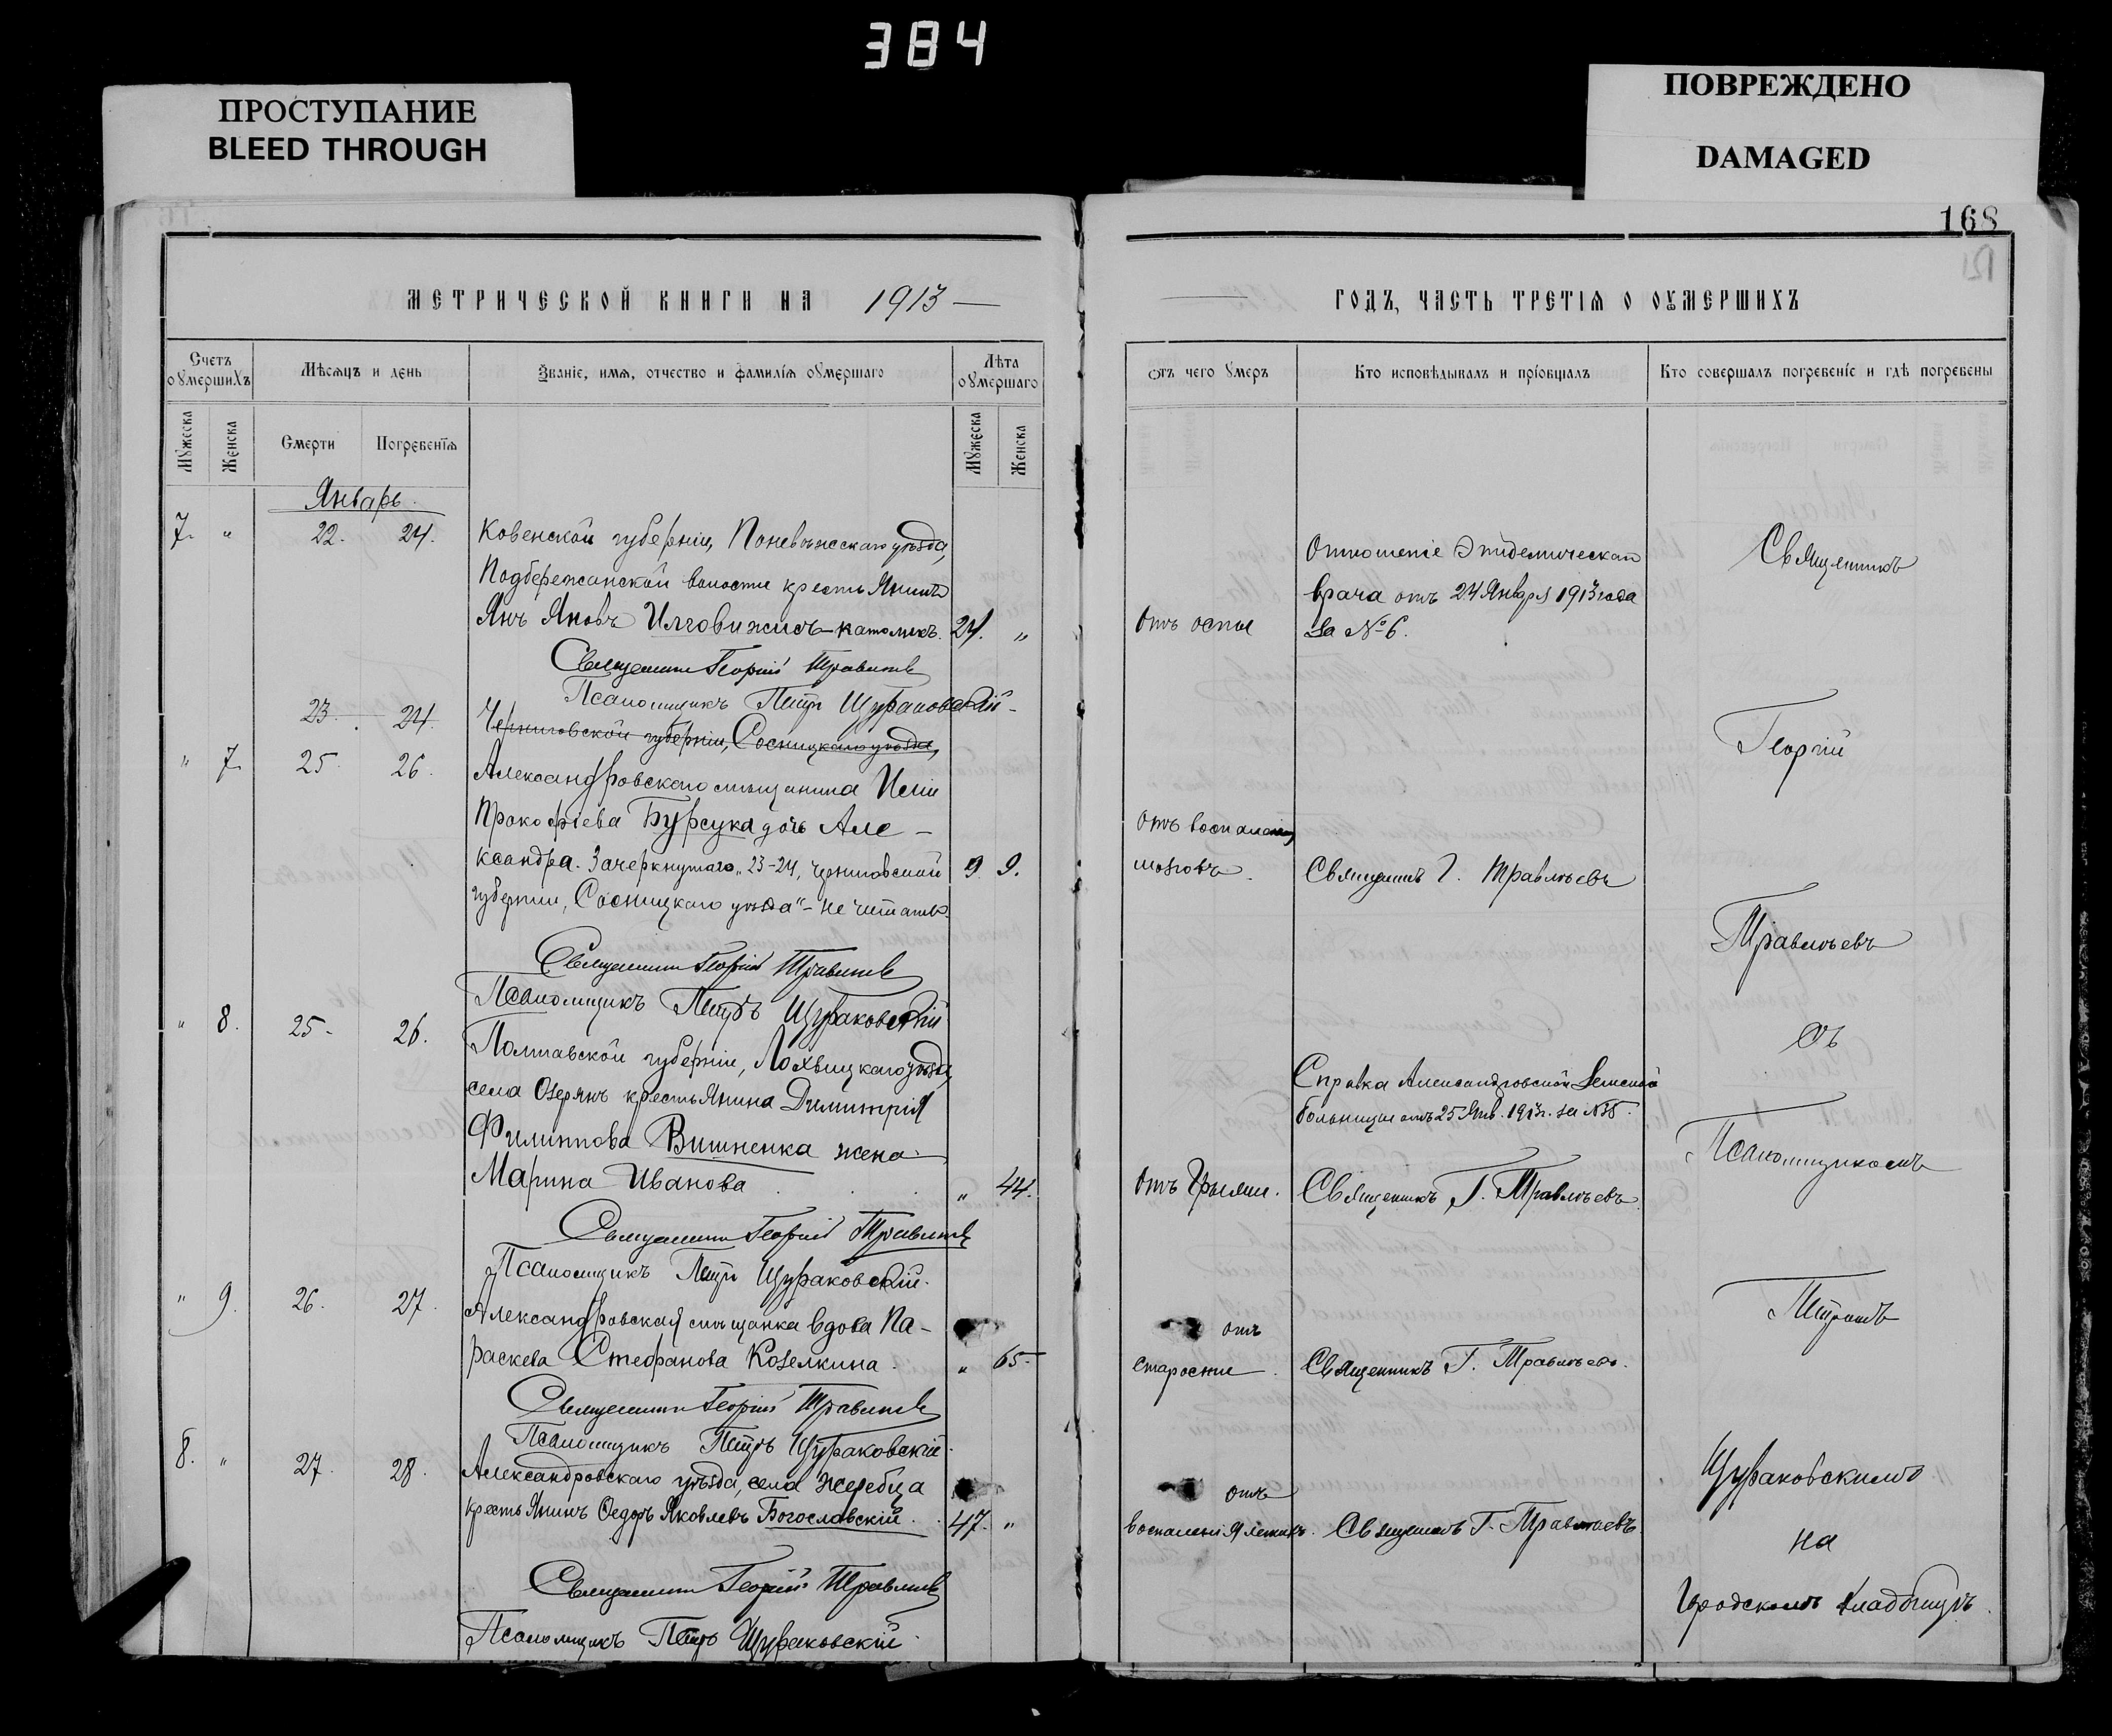 384
ПРОСТУПАНИЕ
BLEED THROUGH
ПОВРЕЖДЕНО
DAMAGED
168
МЕТРИЧЕСКОЙ КНИГИ НА 1913 —
Счетъ оумершихъ
Мѣсяцъ и день
Званіе, имя, отчество и фамилія оумершаго
Лѣта оумершаго
Мужеска
Женска
Смерти
Погребенія
Мужеска
Женска
Январь.
7. " 22. 24. Ковенской губерніи, Поневѣжскаго уѣзда,
Подбережанской волости крестьянинъ
Янъ Яновъ Илговижисъ – католикъ. 24. "
Священникъ Георгій Травлѣевъ
Псаломщикъ Петръ Щураковскій –
23. 24. Черниговской губерніи, Сосницкаго уѣзда,
" 7 25. 26. Александровскаго мѣщанина Иліи
Прокофіева Бурсука дочь Але –
ксандра. Зачеркнутаго „23–24, Черниговской 9 9.
губерніи, Сосницкаго уѣзда" – не читать.
Священникъ Георгій Травлѣевъ
Псаломщикъ Петръ Щураковскій
" 8. 25. 26. Полтавской губерніи, Лохвицкаго уѣзда,
села Озерянъ крестьянина Димитрія
Филиппова Вишненка жена
Марина Иванова . . " 44.
Священникъ Георгій Травлѣевъ
Псаломщикъ Петръ Щураковскій.
" 9. 26. 27. Александровская мѣщанка вдова Па –
раскева Стефанова Козелкина. " 65.
Священникъ Георгій Травлѣевъ
Псаломщикъ Петръ Щураковскій.
8. " 27. 28. Александровскаго уѣзда, села Жеребца
крестьянинъ Ѳедоръ Яковлевъ Богословскій. 47. "
Священникъ Георгій Травлѣевъ
Псаломщикъ Петръ Щураковскій.
ГОДЪ, ЧАСТЬ ТРЕТІЯ О ОУМЕРШИХЪ
Отъ чего умеръ
Кто исповѣдывалъ и пріобщалъ
Кто совершалъ погребеніе и гдѣ погребены
Отношеніе Эпидемическаго
врача отъ 24 Января 1913 года
Отъ оспы за № 6.
отъ воспаленія
мозговъ. Священникъ Г. Травлѣевъ
Справка Александровской Земской
больницы отъ 25 Янв. 1913 г. за №
Отъ грыжи. Священникъ Г. Травлѣевъ.
отъ
старости. Священникъ Г. Травлѣевъ.
отъ
воспаленія легкихъ. Священникъ Г. Травлѣевъ.
Священникъ
Георгій
Травлѣевъ
съ
Псаломщикомъ
Петромъ
Щураковскимъ
на
Городскомъ кладбищѣ.